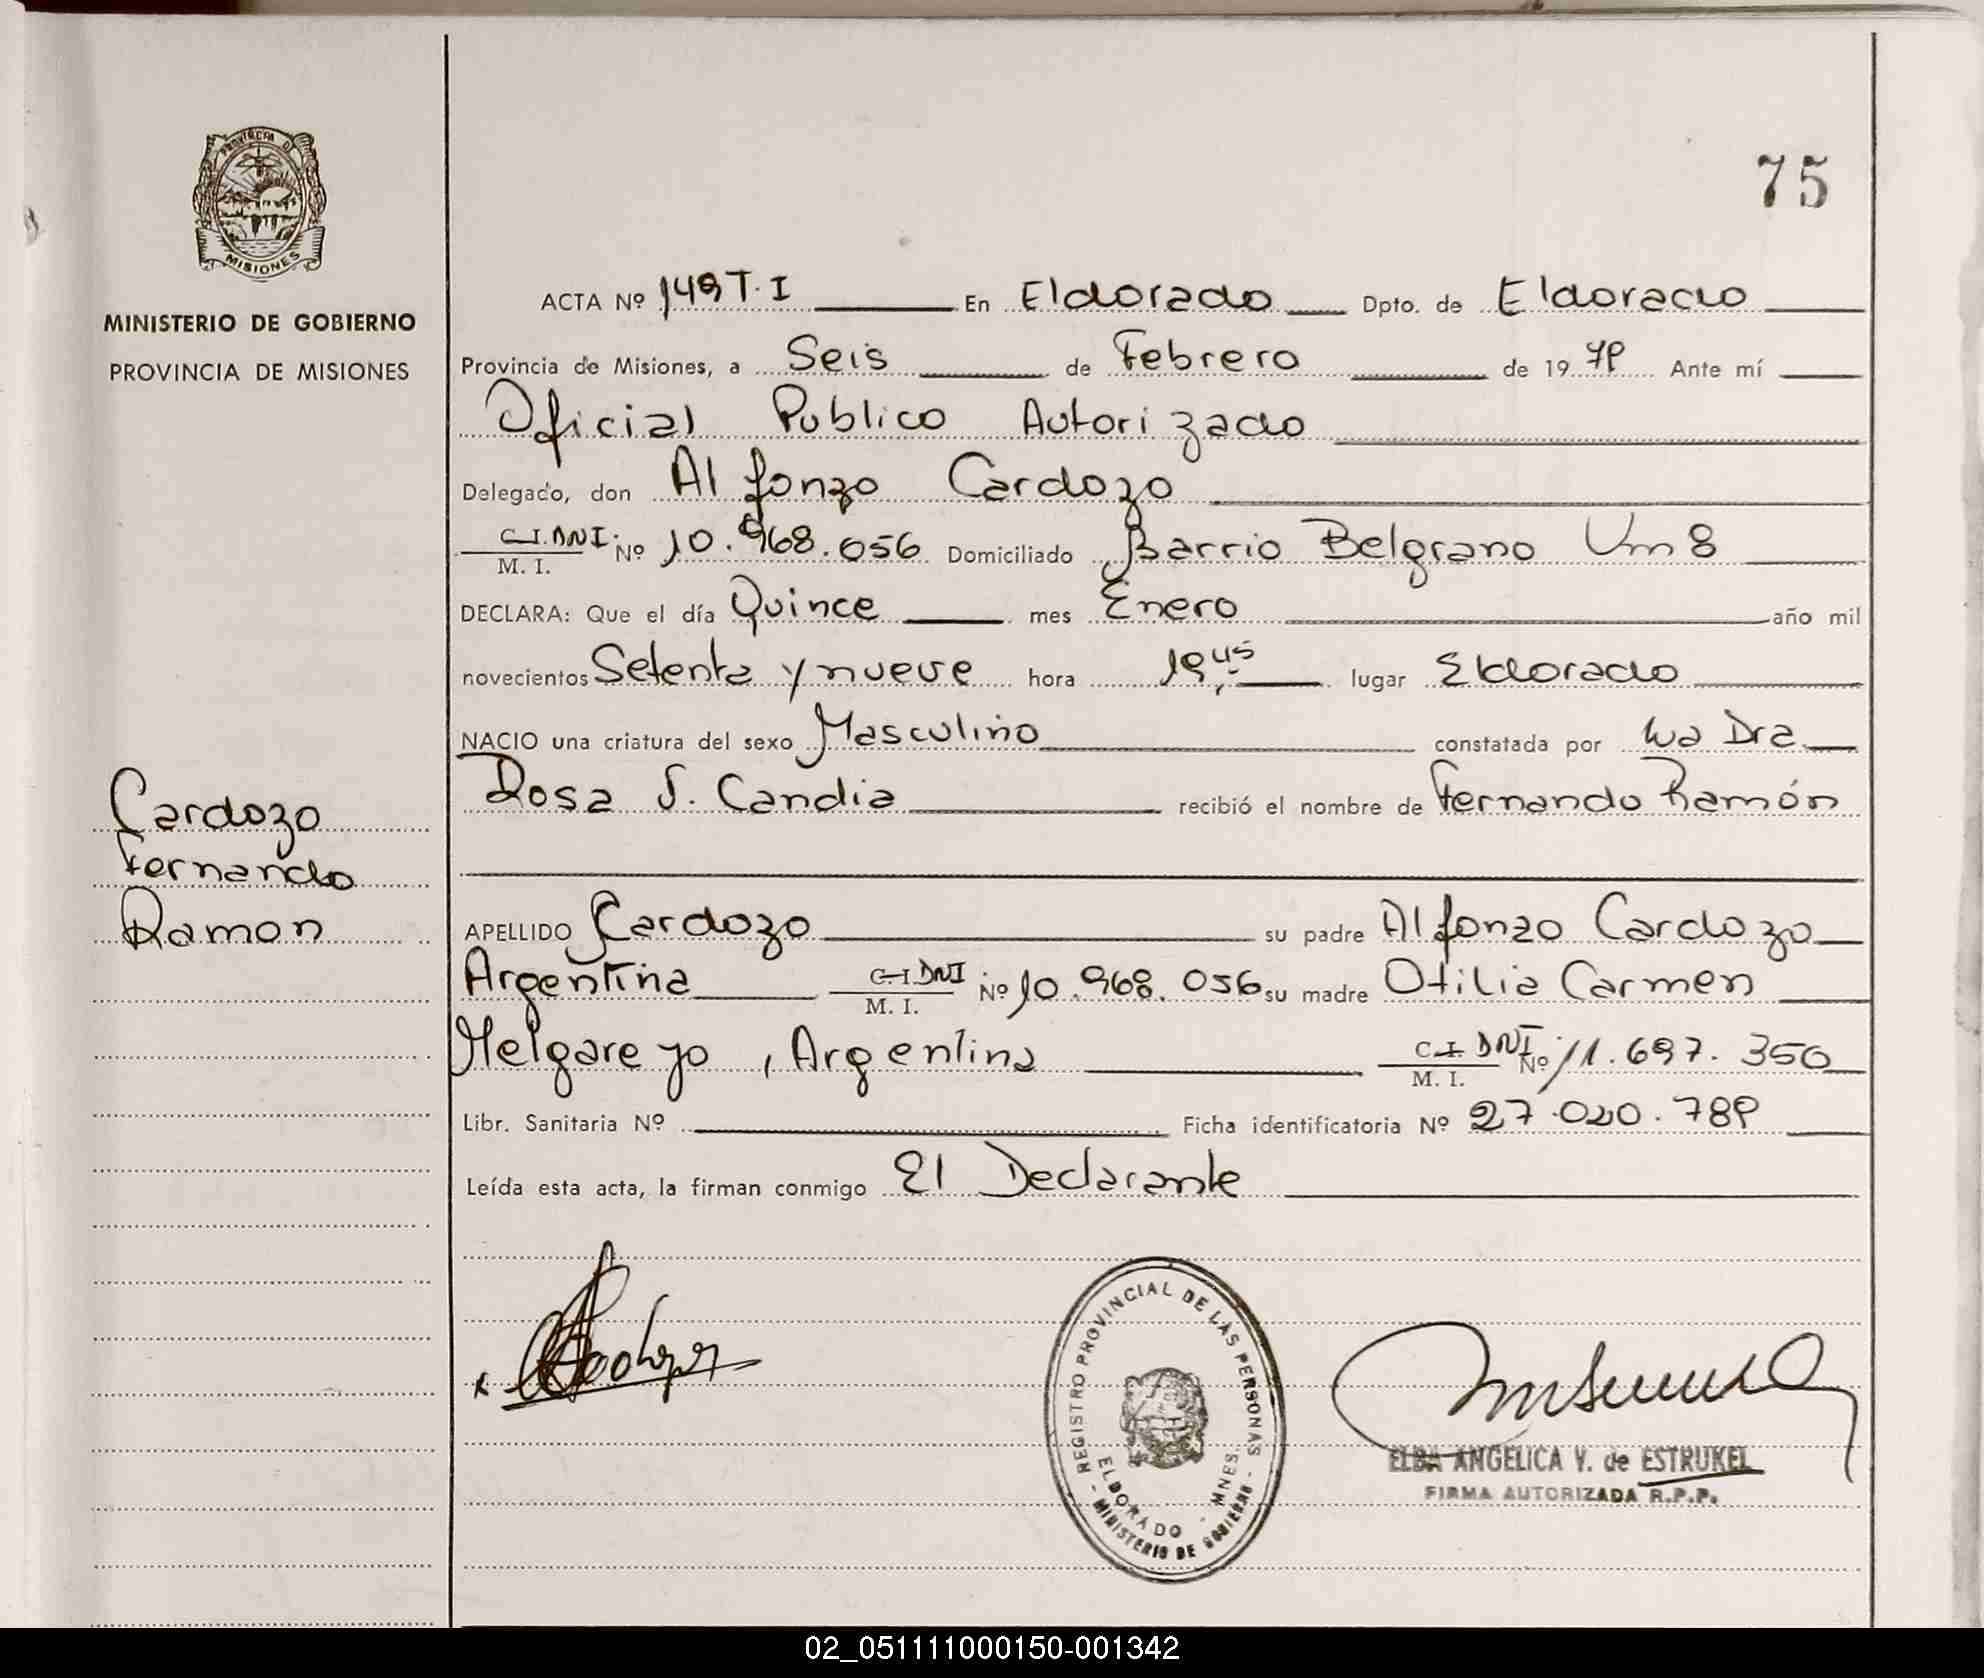 PROVINCIA DE
MISIONES
MINISTERIO DE GOBIERNO
PROVINCIA DE MISIONES
Cardozo
Fernando
Ramon
75
ACTA Nº 149 T. I En Eldorado Dpto. de Eldorado
Provincia de Misiones, a Seis de Febrero de 1979 Ante mí
Oficial Publico Autorizado
Delegado, don Alfonzo Cardozo
C.I. DNI. M. I. Nº 10.968.056 Domiciliado Barrio Belgrano Km 8
DECLARA: Que el día Quince mes Enero año mil
novecientos Setenta y nueve hora 19,45 lugar Eldorado
NACIO una criatura del sexo Masculino constatada por La Dra
Rosa S. Candia recibió el nombre de Fernando Ramón
APELLIDO Cardozo su padre Alfonzo Cardozo
Argentina C.I. DNI M. I. Nº 10.968.056 su madre Otilia Carmen
Melgarejo, Argentina C.I. DNI M. I. Nº 11.697.350
Libr. Sanitaria Nº Ficha identificatoria Nº 27.020.789
Leída esta acta, la firman conmigo El Declarante
REGISTRO PROVINCIAL DE LAS PERSONAS
ELDORADO - MNES.
- MINISTERIO DE GOBIERNO -
ELBA ANGELICA V. de ESTRUKEL
FIRMA AUTORIZADA R.P.P.
02_051111000150-001342